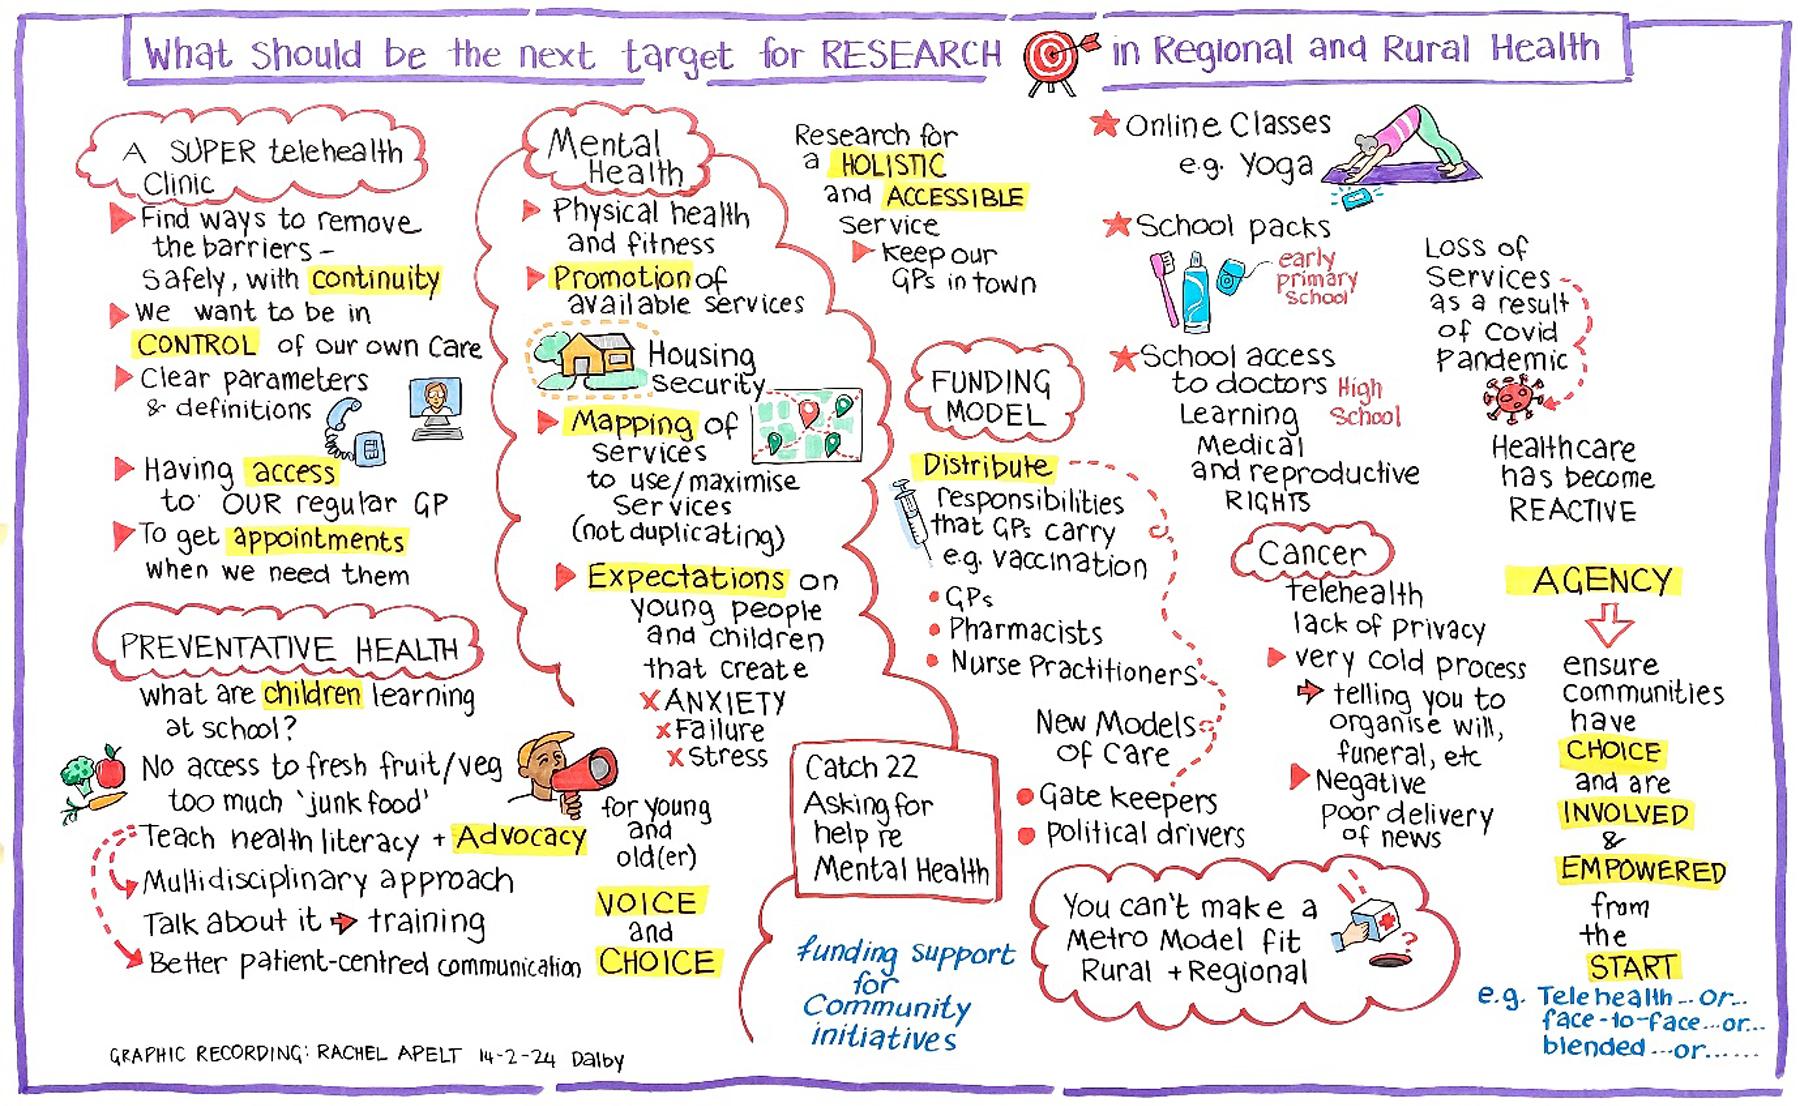 What should be the next target for RESEARCH in Regional and Rural Health
A SUPER telehealth
Clinic
Find ways to remove
the barriers -
safely, with continuity
We want to be in
CONTROL of our own care
Clear parameters
& definitions
Having access
to OUR regular GP
To get appointments
when we need them
PREVENTATIVE HEALTH
what are children learning
at school?
No access to fresh fruit/veg
too much 'junk food'
Teach health literacy + Advocacy
Multidisciplinary approach
Talk about it → training
Better patient-centred communication
for young
and
old(er)
VOICE
and
CHOICE
Mental
Health
Physical health
and fitness
Promotion of
available services
Housing
Security
Mapping of
services
to use/maximise
services
(not duplicating)
Expectations on
young people
and children
that create
x ANXIETY
x Failure
x Stress
Catch 22
Asking for
help re
Mental Health
funding support
for
Community
initiatives
Research for
a HOLISTIC
and ACCESSIBLE
service
Keep our
GPs in town
FUNDING
MODEL
Distribute
responsibilities
that GPs carry
e.g. vaccination
• GPs
• Pharmacists
• Nurse Practitioners
New Models
of Care
• Gate keepers
• political drivers
You can't make a
Metro Model fit
Rural + Regional
?
★ Online Classes
e.g. Yoga
★ School packs
early
primary
school
★ School access
to doctors High
School
Learning
Medical
and reproductive
RIGHTS
Cancer
telehealth
lack of privacy
very cold process
→ telling you to
organise will,
funeral, etc
Negative
poor delivery
of news
Loss of
Services
as a result
of Covid
Pandemic
Healthcare
has become
REACTIVE
AGENCY
ensure
communities
have
CHOICE
and are
INVOLVED
&
EMPOWERED
from
the
START
e.g. Telehealth... or...
face-to-face...or...
blended...or......
GRAPHIC RECORDING: RACHEL APELT 14-2-24 Dalby